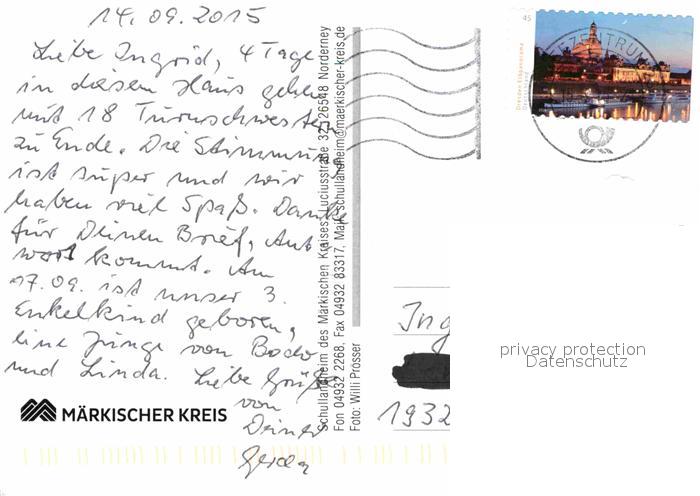 14.09.2015
Liebe Ingrid, 4 Tage
in diesem Haus gehen
mit 18 Turnschwestern
zu Ende. Die Stimmung
ist super und wir
haben viel Spaß. Danke
für Deinen Brief, Ant
wort kommt. Am
17.09. ist unser 3.
Enkelkind geboren,
eine Junge von Bodo
und Linda. Liebe Grüße
von
Deiner
MÄRKISCHER KREIS
Schullandheim des Märkischen Kreises Luciusstraße 32, 26548 Norderney
Fon 04932 2268, Fax 04932 83317, Mail: schullandheim@maerkischer-kreis.de
Foto: Willi Prösser
45
Dresden Elbpanorama
Deutschland
ZENTRUM
Ing
1932
privacy protection
Datenschutz